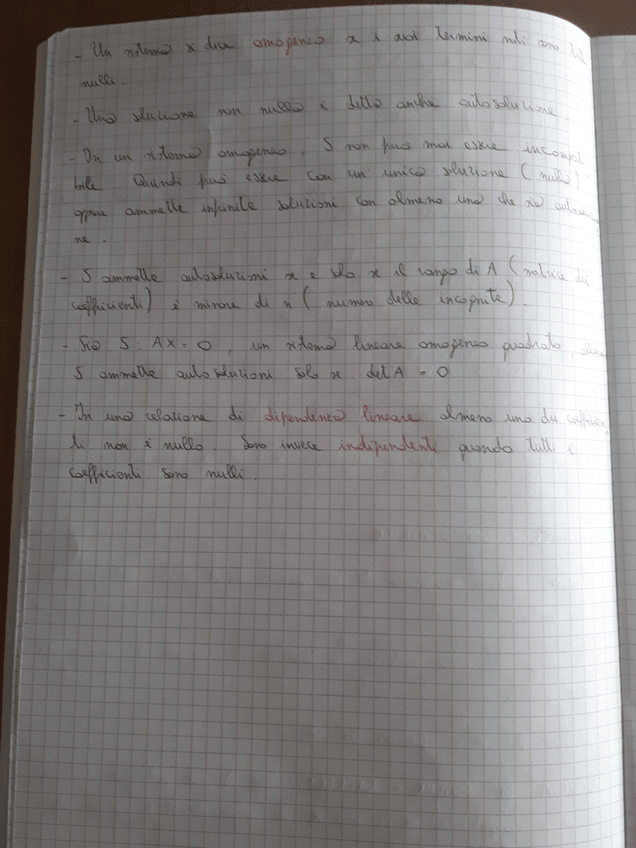 - Un sistema si dice omogeneo se i suoi termini noti sono tutti
nulli.
- Una soluzione non nulla è detta anche autosoluzione.
- In un sistema omogeneo, S non può mai essere incompati
bile. Quindi può essere con un'unica soluzione (nulla)
oppure ammette infinite soluzioni con almeno una che sia autosoluzio
ne.
- S ammette autosoluzioni se e solo se il rango di A (matrice dei
coefficienti) è minore di n (numero delle incognite).
- Sia S: AX = 0, un sistema lineare omogeneo quadrato,
S ammette autosoluzioni solo se det A = 0
- In una relazione di dipendenza lineare almeno uno dei coefficien
ti non è nullo. Sono invece indipendenti quando tutti i
coefficienti sono nulli.